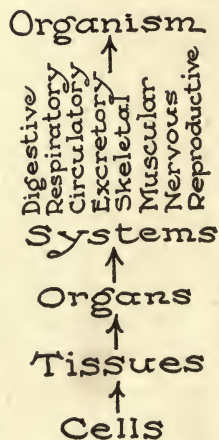 Organism
Digestive
Respiratory
Circulatory
Excretory
Skeletal
Muscular
Nervous
Reproductive
Systems
Organs
Tissues
Cells